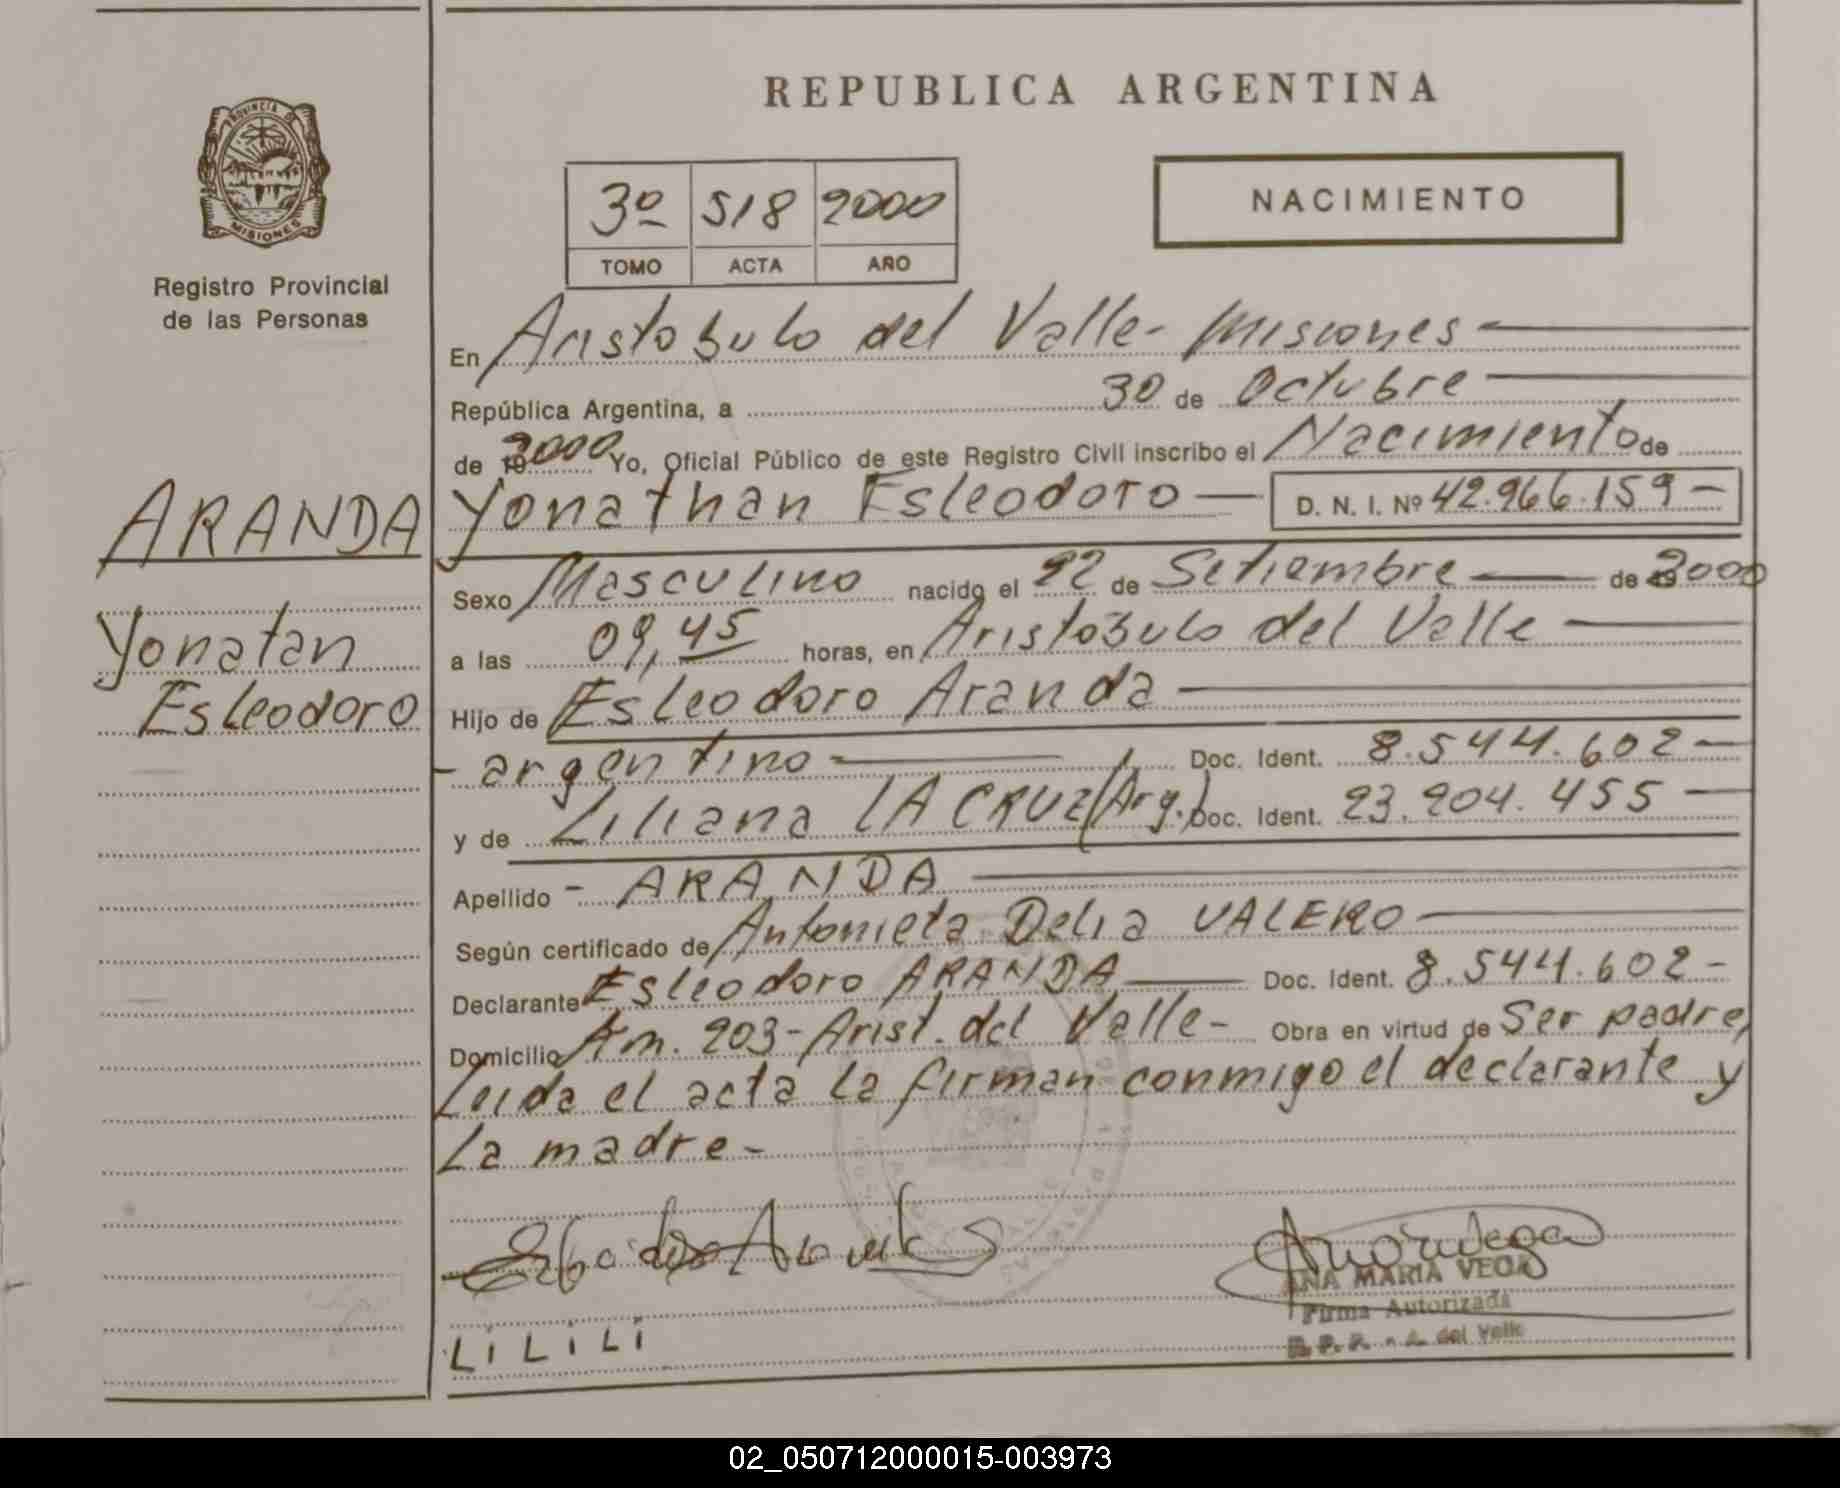 REPUBLICA ARGENTINA
PROVINCIA DE
MISIONES
Registro Provincial
de las Personas
3º 518 2000
TOMO ACTA AÑO
NACIMIENTO
En Aristobulo del Valle - Misiones
República Argentina, a 30 de Octubre
de 2000 Yo, Oficial Público de este Registro Civil inscribo el Nacimiento de
ARANDA
Yonathan Esleodoro D. N. I. Nº 42.966.159 -
Sexo Masculino nacido el 22 de Setiembre de 2000
Yonatan
a las 09,45 horas, en Aristobulo del Valle
Esleodoro
Hijo de Esleodoro Aranda
- argentino Doc. Ident. 8.544.602 -
y de Liliana LA CRUZ (Arg.) Doc. Ident. 23.204.455
Apellido - ARANDA
Según certificado de Antonieta Delia VALERO
Declarante Esleodoro ARANDA Doc. Ident. 8.544.602 -
Domicilio Am. 203 - Arist. del Valle - Obra en virtud de Ser padre,
Leida el acta la firman conmigo el declarante y
La madre -
ANA MARIA VEGA
Firma Autorizada
R. P. P. - A. del Valle
LiLiLi
02_050712000015-003973